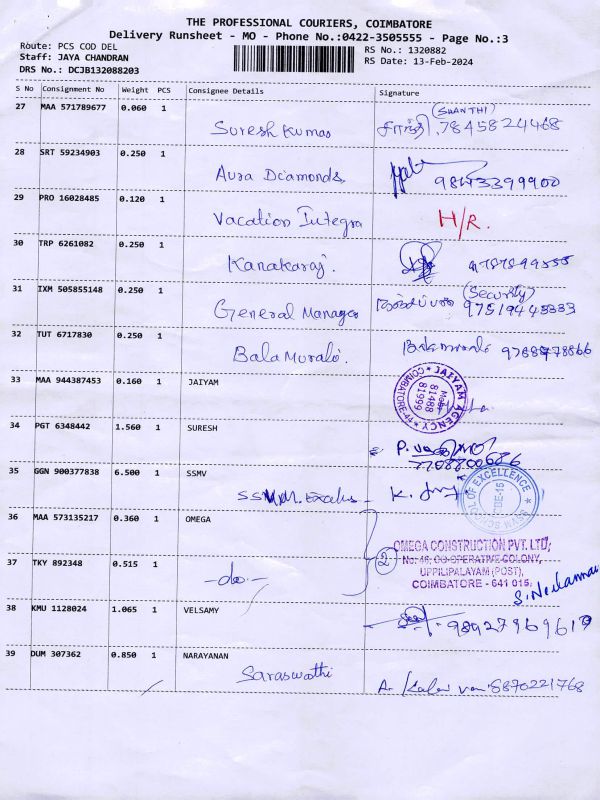 THE PROFESSIONAL COURIERS, COIMBATORE
Delivery Runsheet - MO - Phone No.:0422-3505555 - Page No.:3
Route: PCS COD DEL
Staff: JAYA CHANDRAN
DRS No.: DCJB132088203
RS No.: 1320882
RS Date: 13-Feb-2024
S No Consignment No Weight PCS Consignee Details Signature
27 MAA 571789677 0.060 1
(SHANTHI)
Suresh Kumar சாந்தி 7845824468
28 SRT 59234903 0.250 1
Aura Diamonds 9843399900
29 PRO 16028485 0.120 1
Vacation Integra H/R.
30 TRP 6261082 0.250 1
Kanakaraj.
31 IXM 505855148 0.250 1
(Security)
General Manager
32 TUT 6717830 0.250 1
Bala Murali.
33 MAA 944387453 0.160 1 JAIYAM
JAIYAM AGENCY
COIMBATORE-44
81488
81999
34 PGT 6348442 1.560 1 SURESH
7708800686
35 GGN 900377838 6.500 1 SSMV
SSVM SCHOOL OF EXCELLENCE
CBE-15
36 MAA 573135217 0.360 1 OMEGA
37 TKY 892348 0.515 1
-do-
2
OMEGA CONSTRUCTION PVT. LTD;
No: 46, CO-OPERATIVE COLONY,
UPPILIPALAYAM (POST),
COIMBATORE - 641 015.
38 KMU 1128024 1.065 1 VELSAMY
39 DUM 307362 0.850 1 NARAYANAN
Saraswathi
8870221768